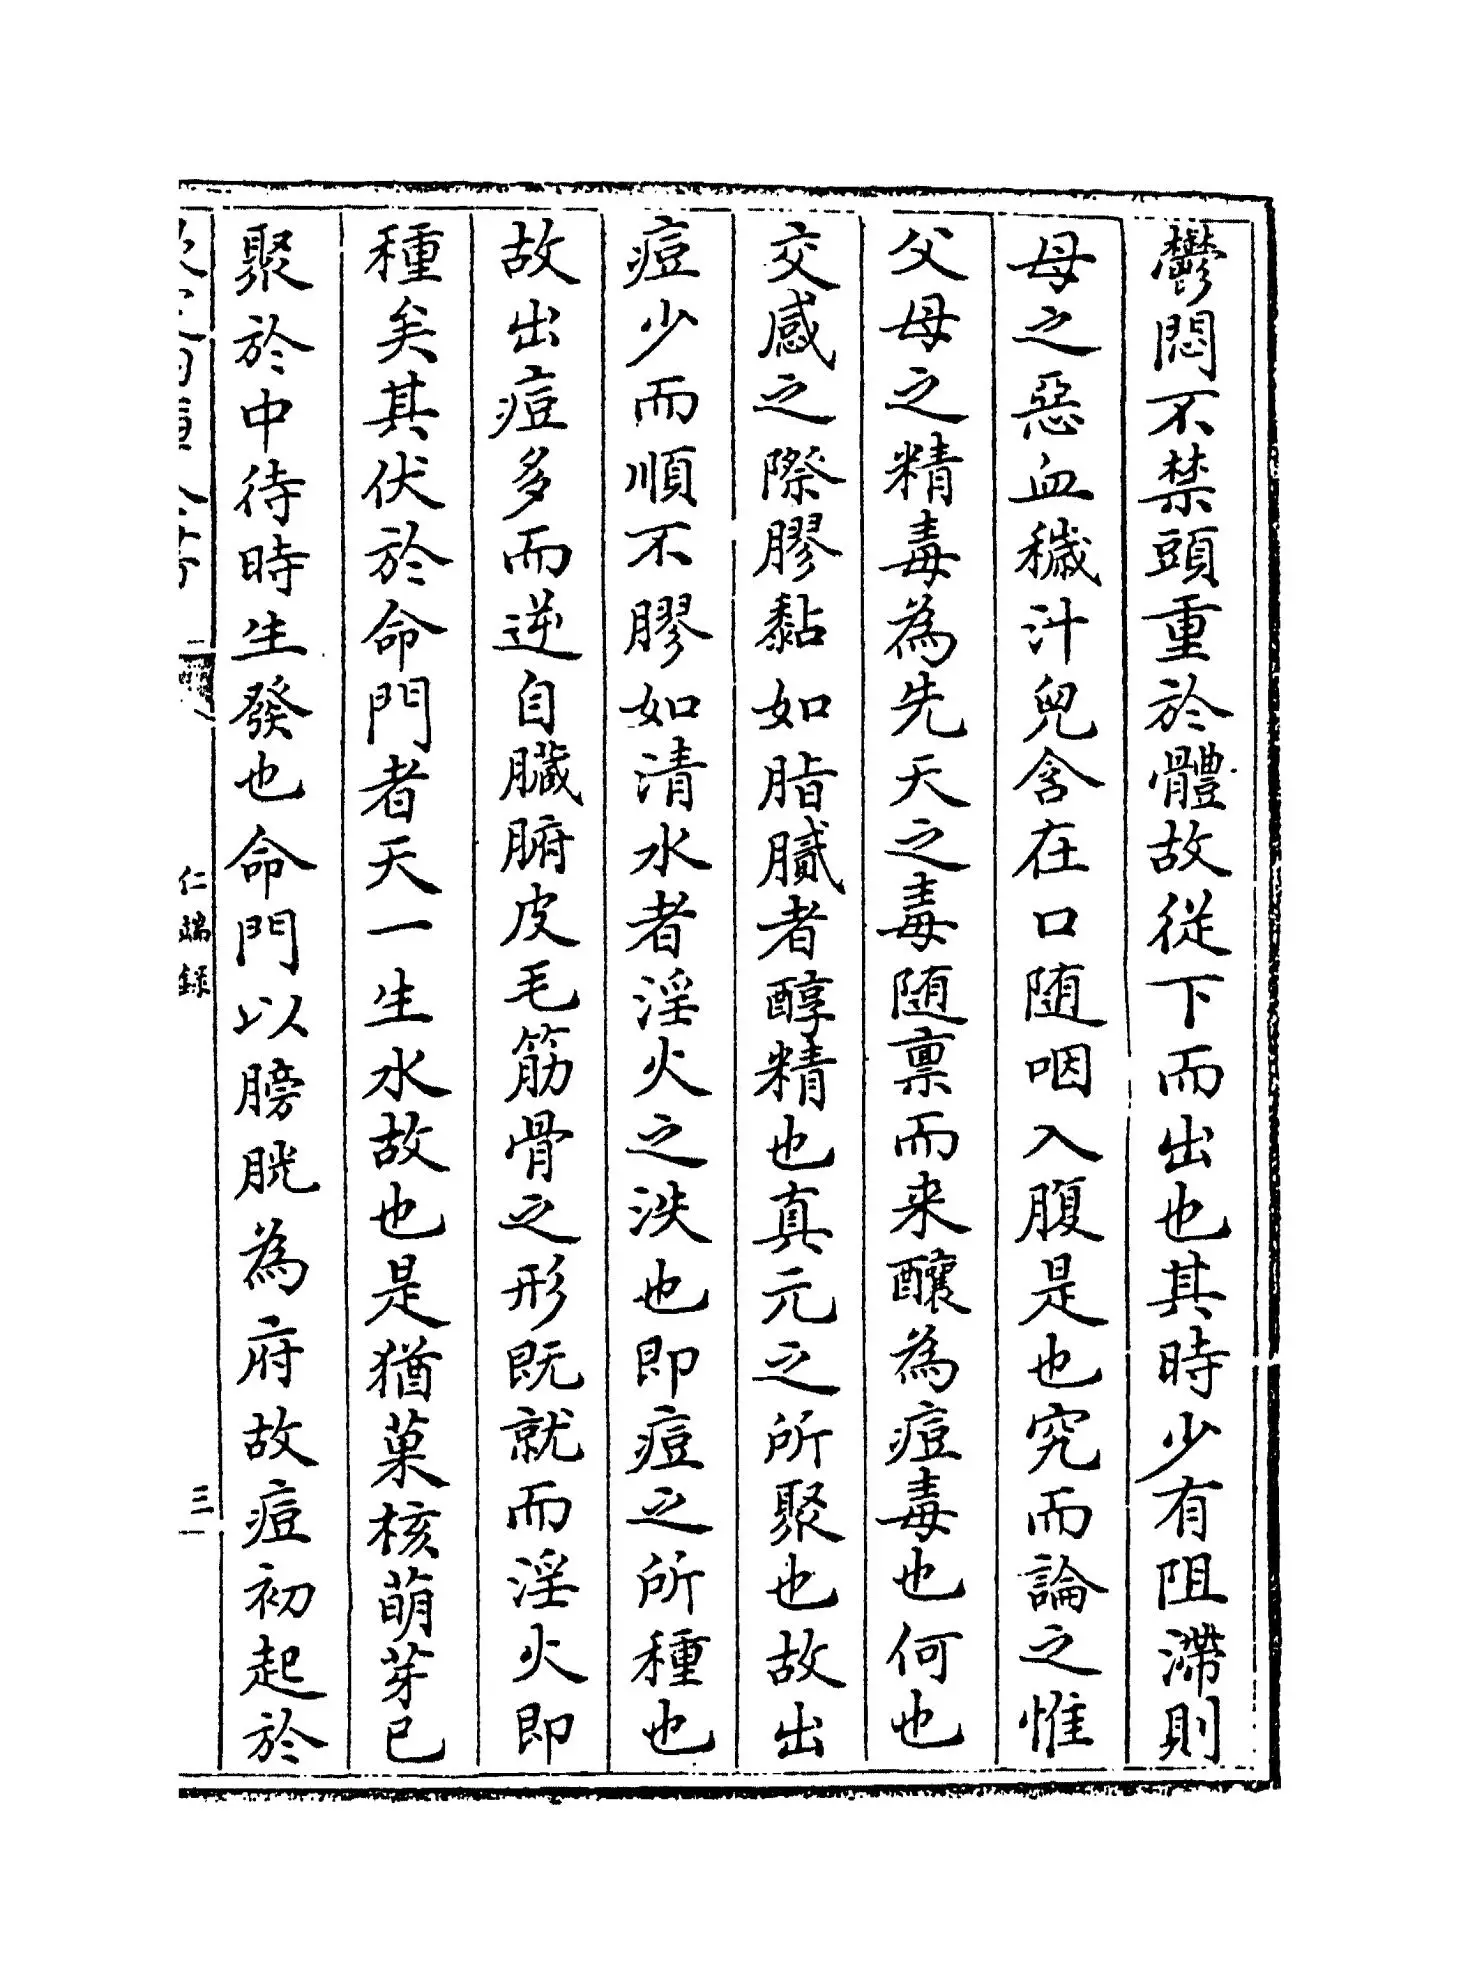 鬱悶不禁頭重於體故從下而出也其時少有阻滯則
母之惡血穢汁兒含在口随咽入腹是也究而論之惟
父母之精毒為先天之毒随禀而来釀為痘毒也何也
交感之際膠黏如脂膩者醇精也真元之所聚也故出
痘少而順不膠如清水者淫火之泆也即痘之所種也
故出痘多而逆自臟腑皮毛筋骨之形既就而淫火即
種矣其伏於命門者天一生水故也是猶菓核萌芽已
聚於中待時生發也命門以膀胱為府故痘初起於
仁端錄
三